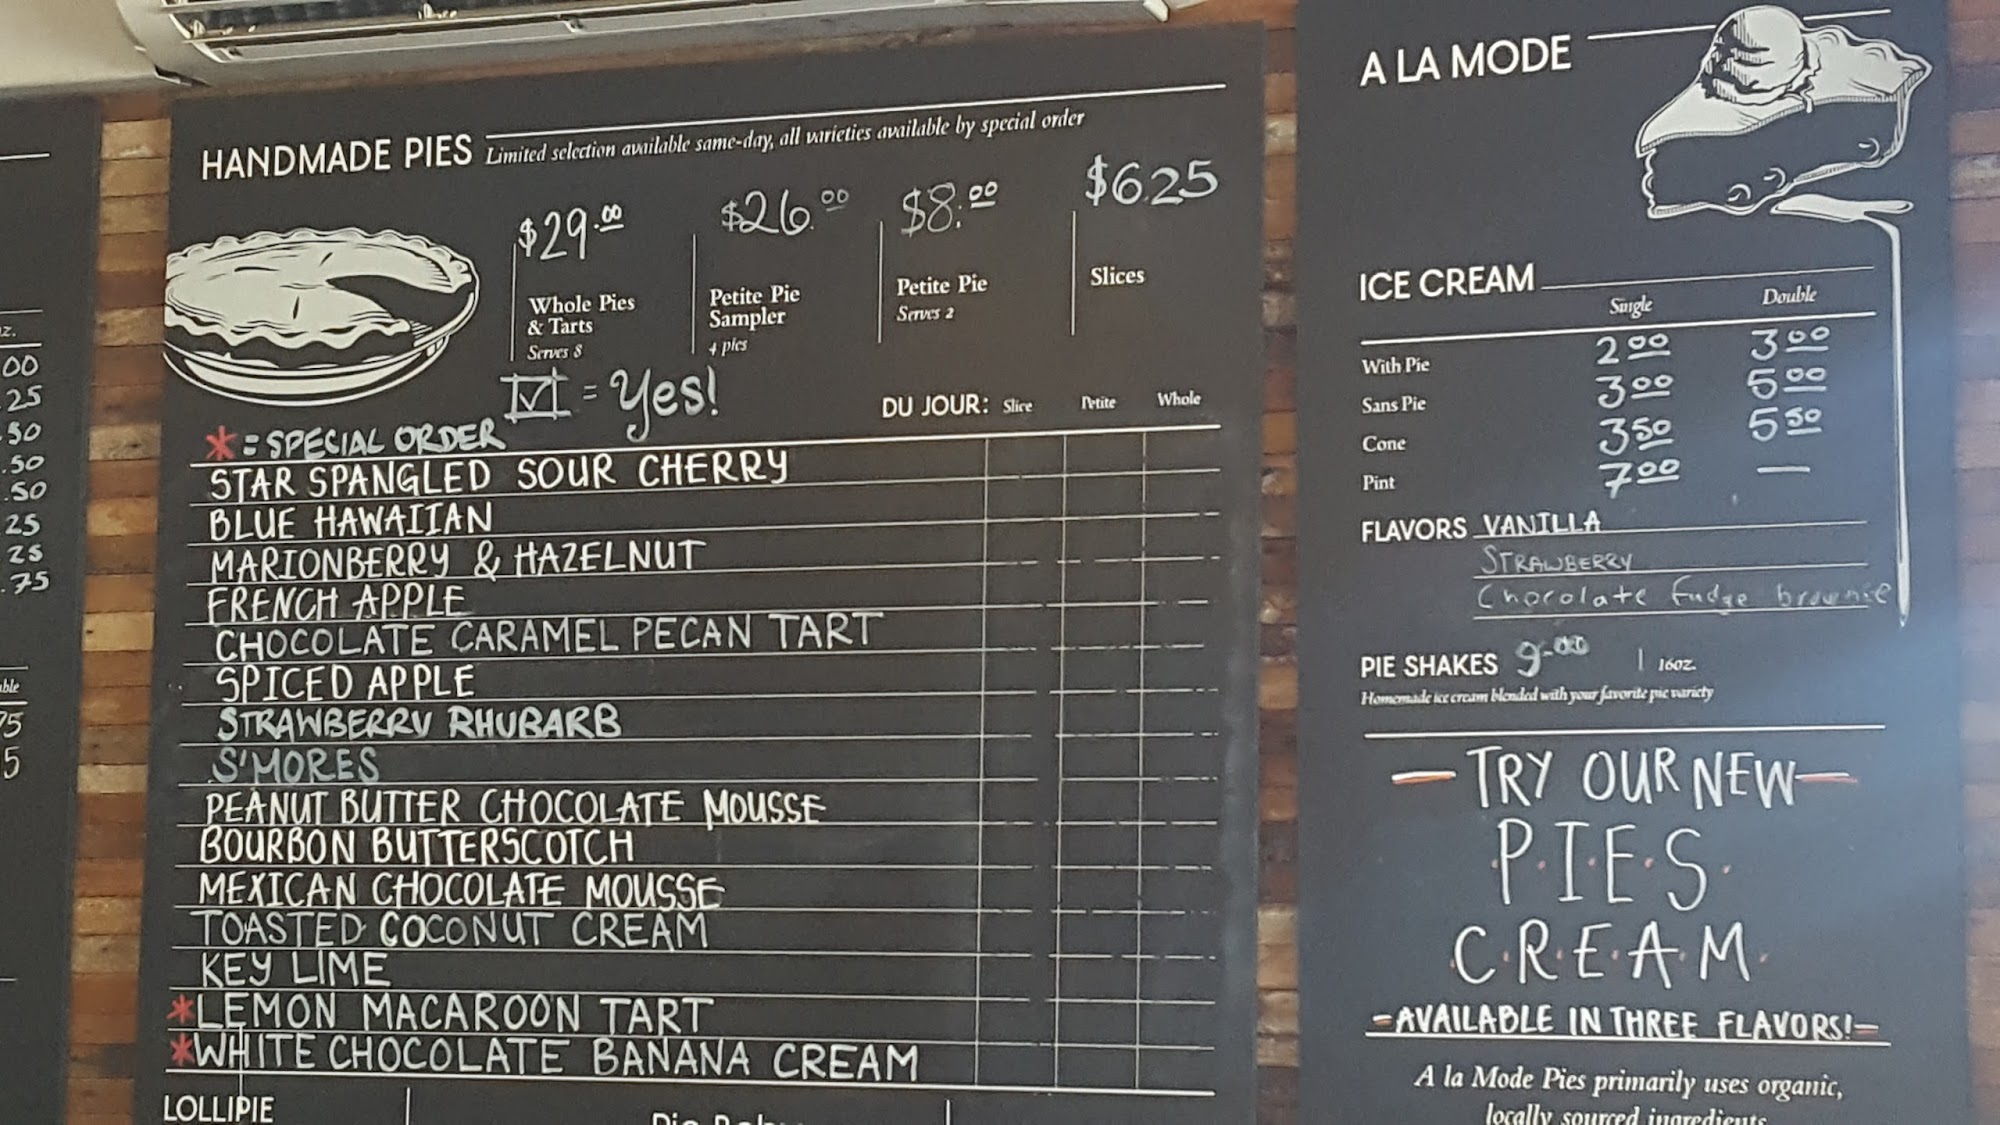 z.
00
.25
.50
.50
.50
25
25
.75
ble
75
5
HANDMADE PIES Limited selection available same-day, all varieties available by special order
$29.00
Whole Pies
& Tarts
Serves 8
$26.00
Petite Pie
Sampler
4 pies
$8.00
Petite Pie
Serves 2
$6.25
Slices
= Yes!
* = SPECIAL ORDER
DU JOUR: Slice Petite Whole
STAR SPANGLED SOUR CHERRY
BLUE HAWAIIAN
MARIONBERRY & HAZELNUT
FRENCH APPLE
CHOCOLATE CARAMEL PECAN TART
SPICED APPLE
STRAWBERRY RHUBARB
S'MORES
PEANUT BUTTER CHOCOLATE MOUSSE
BOURBON BUTTERSCOTCH
MEXICAN CHOCOLATE MOUSSE
TOASTED COCONUT CREAM
KEY LIME
*LEMON MACAROON TART
*WHITE CHOCOLATE BANANA CREAM
LOLLIPIE
A LA MODE
ICE CREAM
Single Double
With Pie 2.00 3.00
Sans Pie 3.00 5.00
Cone 3.50 5.50
Pint 7.00 —
FLAVORS VANILLA
STRAWBERRY
Chocolate fudge brownie
PIE SHAKES 9.00 | 16oz.
Homemade ice cream blended with your favorite pie variety
— TRY OUR NEW —
P.I.E.S.
C.R.E.A.M.
-AVAILABLE IN THREE FLAVORS!-
A la Mode Pies primarily uses organic,
locally sourced ingredients